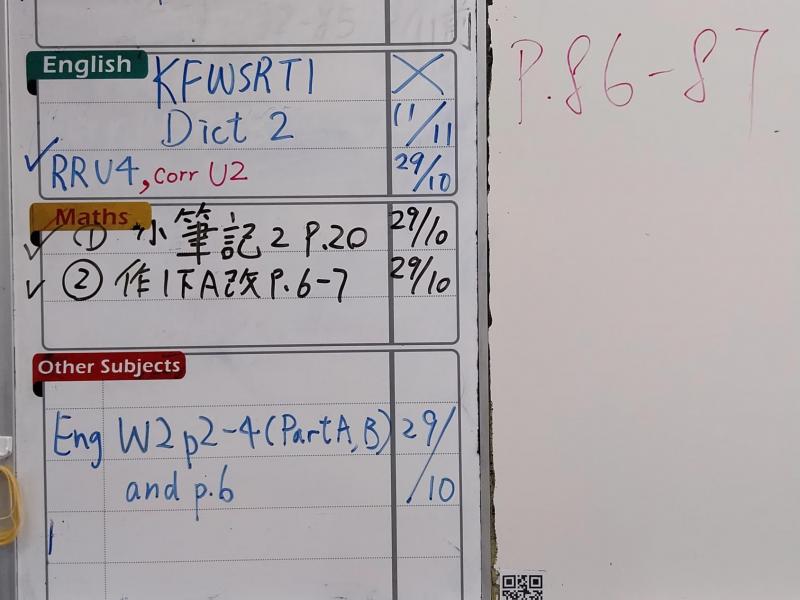 English
KFWSRT1 X
Dict 2 11/11
✓ RRU4, corr U2 29/10
Maths
✓ ① 小筆記 2 P.20 29/10
✓ ② 作1下A改 P.6-7 29/10
Other Subjects
Eng W2 p2-4 (Part A, B) 29/
and p.6 /10
P.86-87